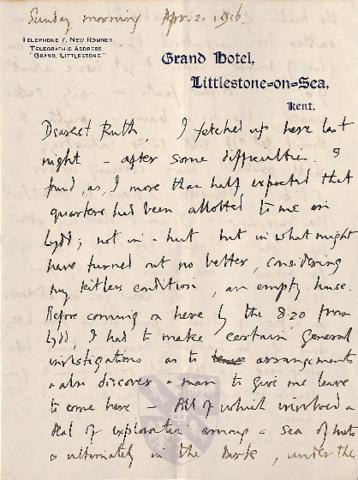 Sunday morning Apr. 2. 1916.
TELEPHONE 7, NEW ROMNEY.
TELEGRAPHIC ADDRESS
"GRAND, LITTLESTONE."
Grand Hotel,
Littlestone=on=Sea,
Kent.
Dearest Ruth, I fetched up here last
night – after some difficulties. I
find, as I more than half expected that
quarters had been allotted to me in
Lydd; not in a hut but in what might
have turned out no better, considering
my kitless condition, an empty house.
Before coming on here by the 8.20 from
Lydd, I had to make certain general
investigations as to arrangements
& also discover a man to give me leave
to come here – All of which involved a
deal of exploration among a sea of huts
& ultimately in the dark, under the